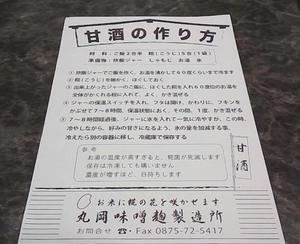 甘酒の作り方
材料:ご飯2合半 糀(こうじ)5合(1袋)
準備物:炊飯ジャー しゃもじ お湯 氷
①炊飯ジャーでご飯を炊く、お湯を沸かして60度くらいまで冷ます
②糀(こうじ)を細かく、ほぐしておく
③出来上がったジャーのご飯に、ほぐした糀を入れ60度位のお湯を
全体がかくれる程に入れて、よく、かき混ぜる
④ジャーの保温スイッチを入れ、フタは開け、かわりに、フキンを
かぶせて7~8時間、保温状態におく、その間、1度、かき混ぜる
⑤7~8時間経過後、ジャーに氷を入れて一気に冷やすが、この時、
冷やしながら、好みの甘さになるよう、氷の量を加減する事、
冷えたら別の容器に移し、冷蔵庫で保存する
参考
お湯の温度が高すぎると、糀菌が死滅します
保存は冷凍しても構いません
濃度が増すほど、日持ちします
甘酒
お米に糀の花を咲かせます
丸岡味噌麹製造所
お問合せ ☎・Fax 0875-72-5417